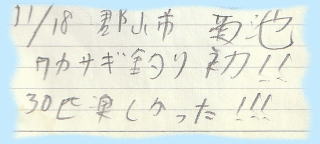 11/18 郡山市 菊池
ワカサギ釣り初!!
30匹楽しかった!!!